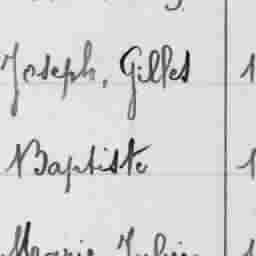 Joseph, Gilles 1
Baptiste 1
Marie Julien 1